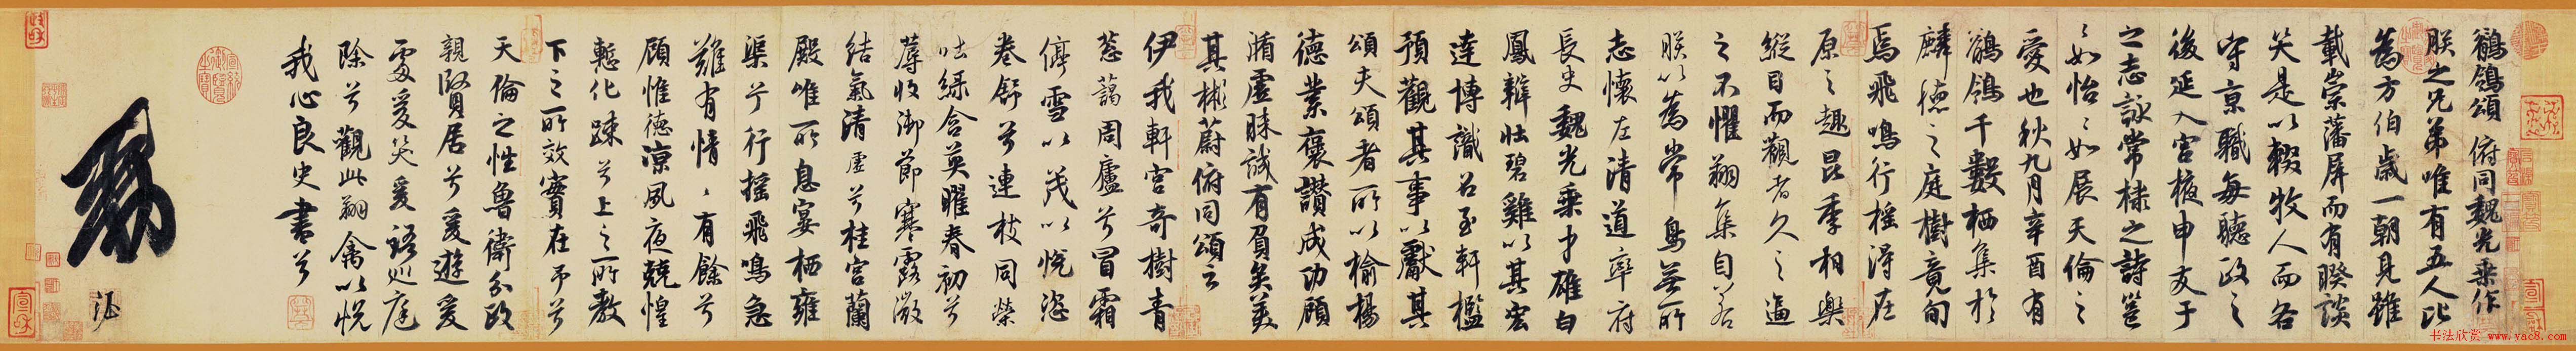 鶺鴒頌 俯同魏光乘作
朕之兄弟唯有五人比
為方伯歲一朝見雖
載崇藩屏而有睽談
笑是以輟牧人而各
守京職每聽政之
後延入宮掖申友于
之志詠常棣之詩邕
邕如怡怡如展天倫之
愛也秋九月辛酉有
鶺鴒千數栖集於
麟德之庭樹竟旬
焉飛鳴行搖得在
原之趣昆季相樂
縱目而觀者久之逼
之不懼翔集自若
朕以為常鳥無所
志懷左清道率府
長史魏光乘才雄白
鳳辯壯碧雞以其宏
達博識召至軒檻
預觀其事以獻其
頌夫頌者所以揄揚
德業褒讚成功顧
循虛昧誠有負矣美
其彬蔚俯同頌云
伊我軒宮奇樹青
蔥藹周廬兮冒霜
停雪以茂以悅恣
卷舒兮連枝同榮
吐綠含英曜春初兮
蓐收御節寒露微
結氣清虛兮桂宮蘭
殿唯所息宴栖雍
渠兮行搖飛鳴急
難有情情有餘兮
顧惟德涼夙夜兢惶
慙化疎兮上之所教
下之所效實在予兮
天倫之性魯衛分政
親賢居兮爰遊爰
處爰笑爰語巡庭
除兮觀此翔禽以悅
我心良史書兮
勅
书法欣赏 www.yac8.com